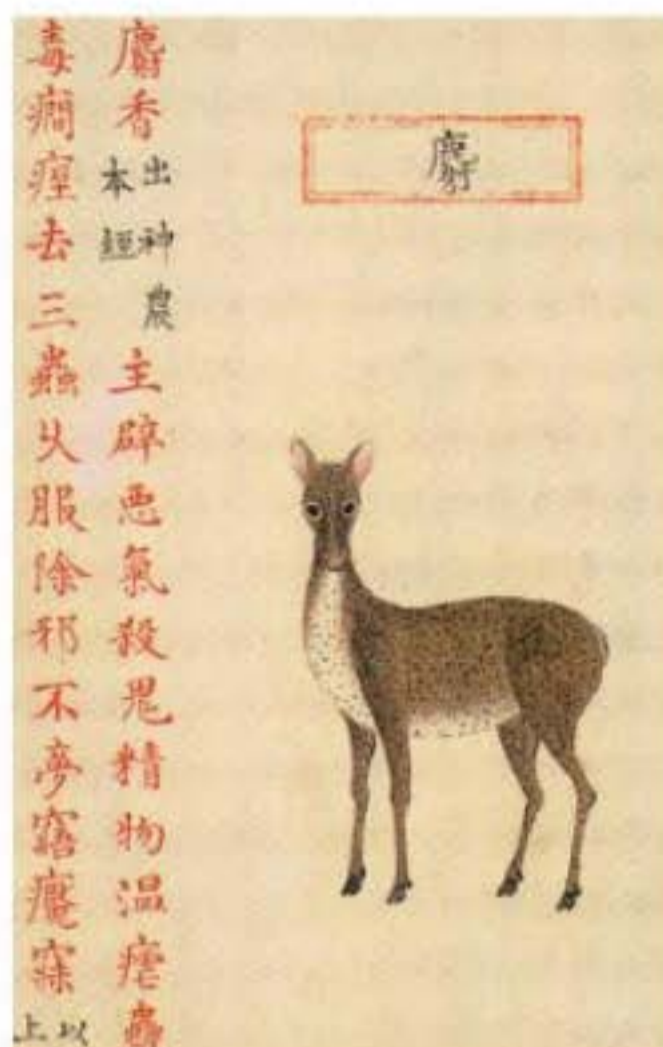 麝
麝香出神農本經主辟惡氣殺鬼精物温瘧蠱
毒癎痓去三蟲久服除邪不夢寤魘寐以上